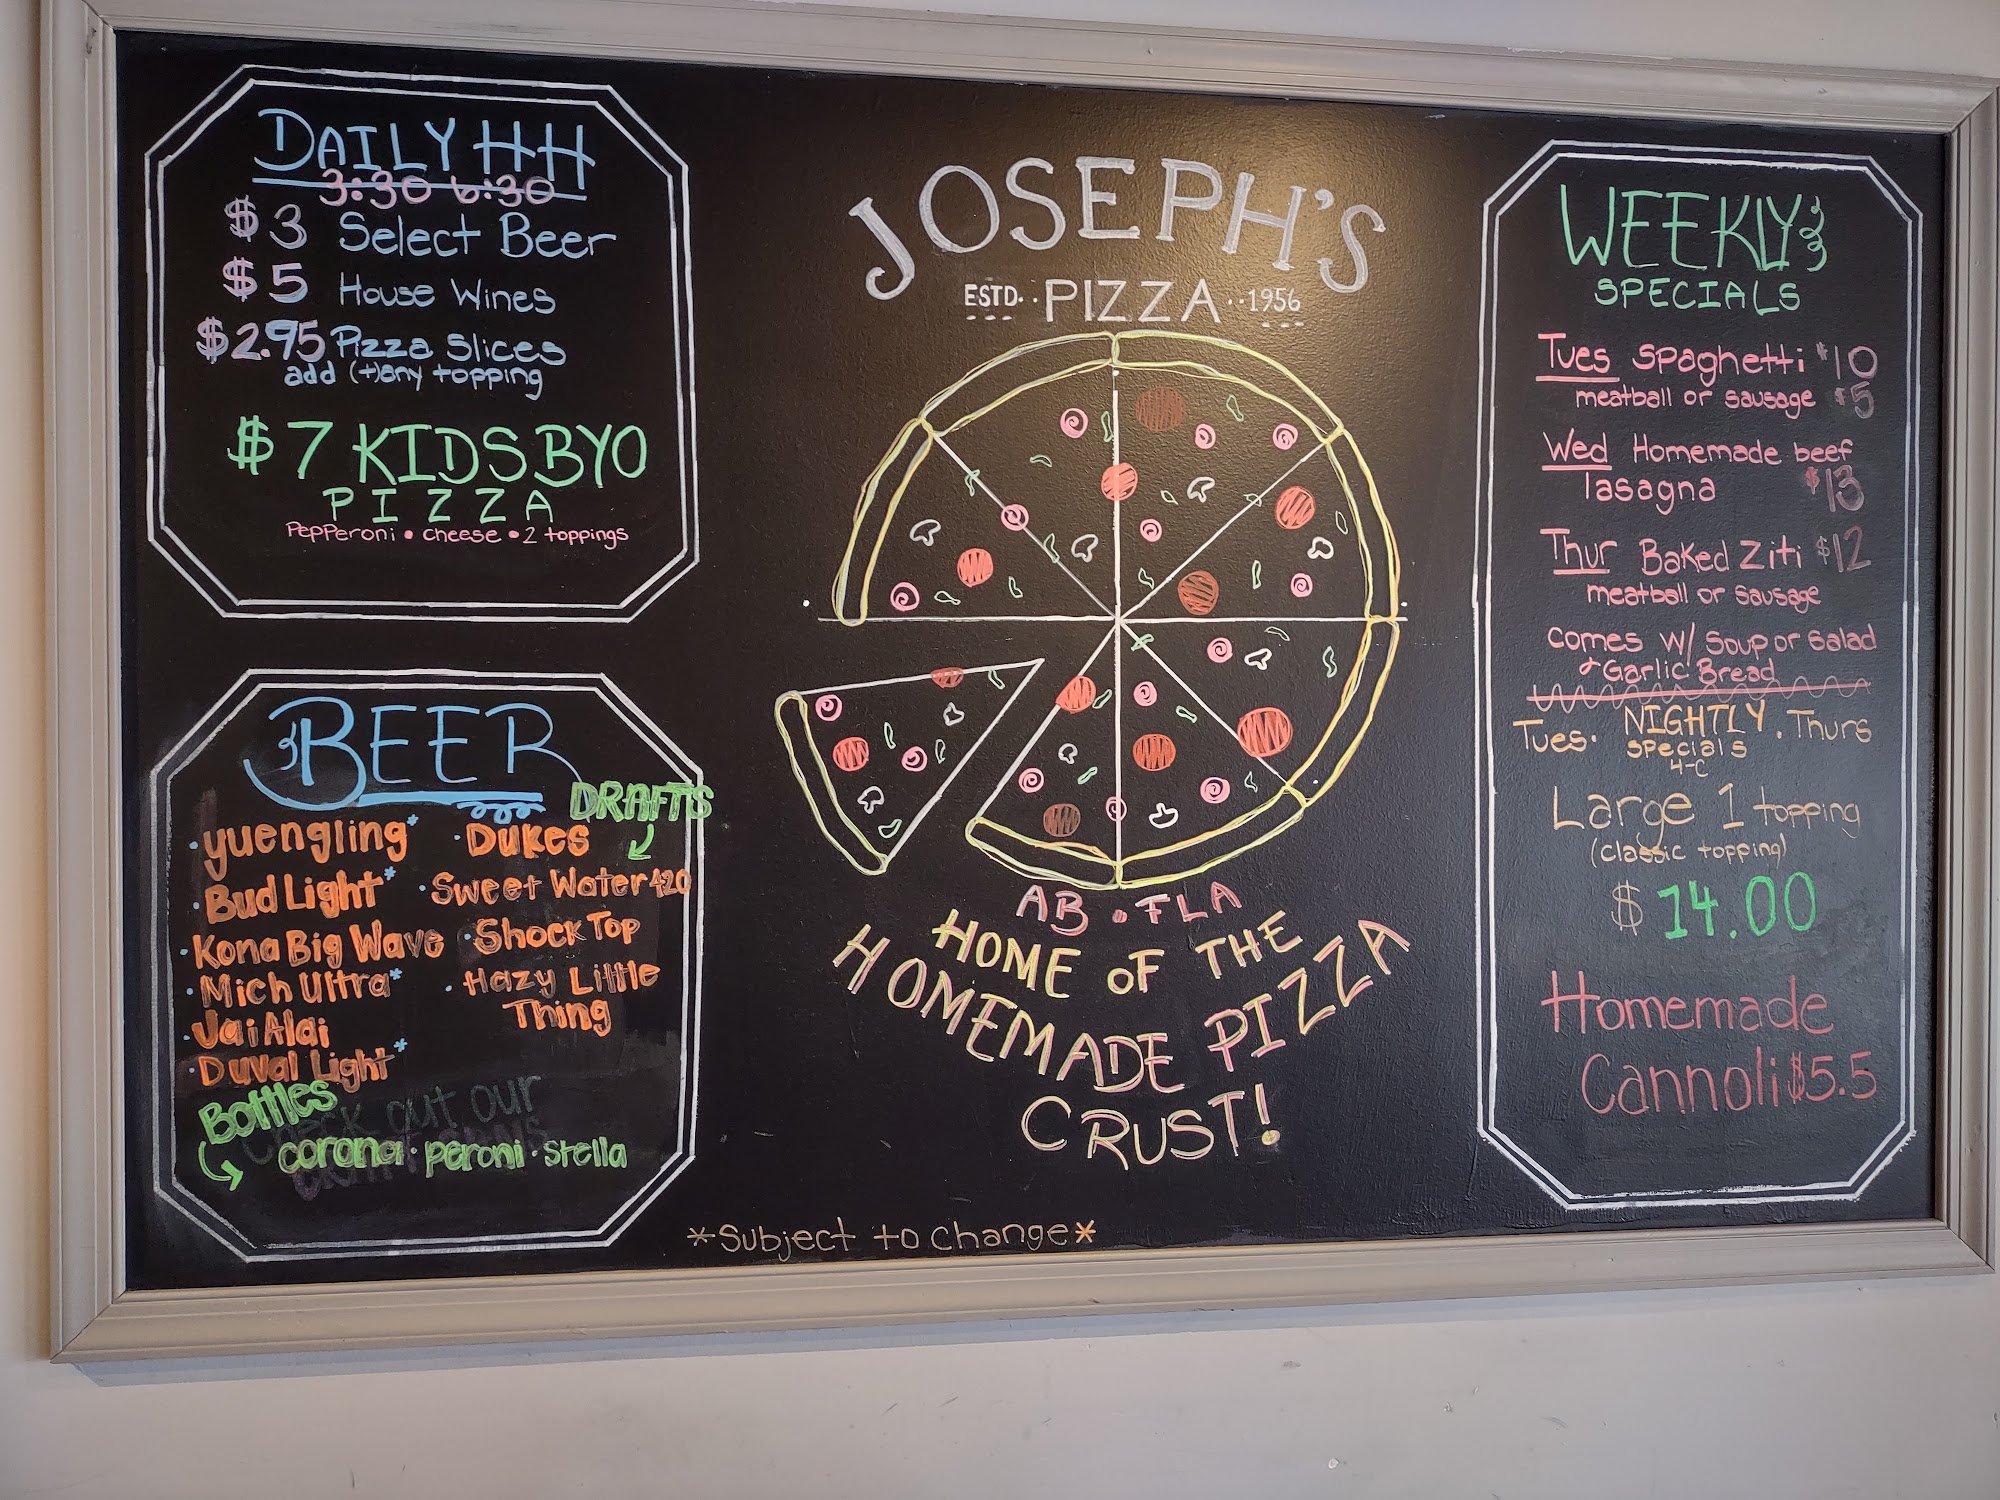 DAILY HH
3:30 6:30
$3 Select Beer
$5 House Wines
$2.95 Pizza Slices
add (+) any topping
$7 KIDS BYO
PIZZA
PepPeroni • cheese • 2 toppings
BEER
DRAFTS
• yuengling*
• Bud Light*
• Kona Big Wave
• Mich Ultra*
• Jai Alai
• Duval Light*
• Dukes
• Sweet Water 420
• Shock Top
• Hazy Little
Thing
Bottles
out our
corona • peroni • stella
JOSEPH'S
ESTD • • PIZZA • • 1956
AB • FLA
HOME OF THE
HOMEMADE PIZZA
CRUST!
*Subject to change*
WEEKLY
SPECIALS
Tues Spaghetti $10
meatball or sausage $5
Wed Homemade beef
lasagna $13
Thur Baked Ziti $12
meatball or sausage
Comes W/ Soup or Salad
& Garlic Bread
Tues • NIGHTLY • Thurs
specials
Large 1 topping
(classic topping)
$14.00
Homemade
Cannoli $5.5